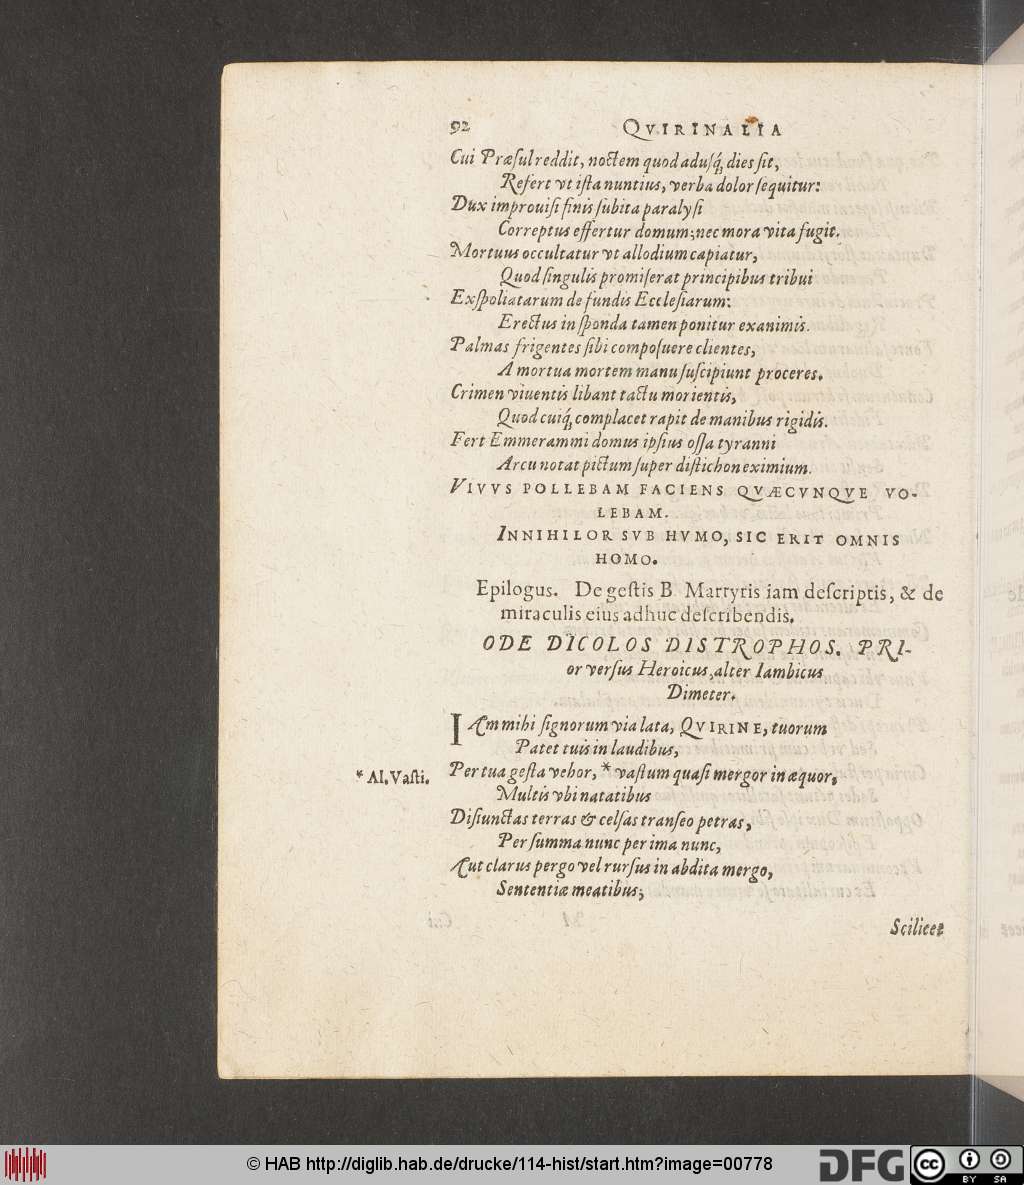 92 QVIRINALIA
Cui Præſul reddit, noctem quod aduſq́; dies ſit,
Refert vt iſta nuntius, verba dolor ſequitur:
Dux improuiſi finis ſubita paralyſi
Correptus effertur domum; nec mora vita fugit.
Mortuus occultatur vt allodium capiatur,
Quod ſingulis promiſerat principibus tribui
Exſpoliatarum de fundis Eccleſiarum:
Erectus in ſponda tamen ponitur exanimis.
Palmas frigentes ſibi compoſuere clientes,
A mortua mortem manu ſuſcipiunt proceres.
Crimen viuentis libant tactu morientis,
Quod cuiq́; complacet rapit de manibus rigidis.
Fert Emmerammi domus ipſius oſſa tyranni
Arcu notat pictum ſuper diſtichon eximium.
VIVVS POLLEBAM FACIENS QVÆCVNQVE VO-
LEBAM.
INNIHILOR SVB HVMO, SIC ERIT OMNIS
HOMO.
Epilogus. De geſtis B. Martyris iam deſcriptis, & de
miraculis eius adhuc deſcribendis.
ODE DICOLOS DISTROPHOS. PRI-
or verſus Heroicus, alter Iambicus
Dimeter.
IAm mihi ſignorum via lata, QVIRINE, tuorum
Patet tuis in laudibus,
* Al. Vaſti. Per tua geſta vehor, * vaſtum quaſi mergor in æquor,
Multis vbi natatibus
Diſiunctas terras & celſas tranſeo petras,
Per ſumma nunc per ima nunc,
Aut clarus pergo vel rurſus in abdita mergo,
Sententiæ meatibus;
Scilicet
© HAB http://diglib.hab.de/drucke/114-hist/start.htm?image=00778
DFG
cc BY SA